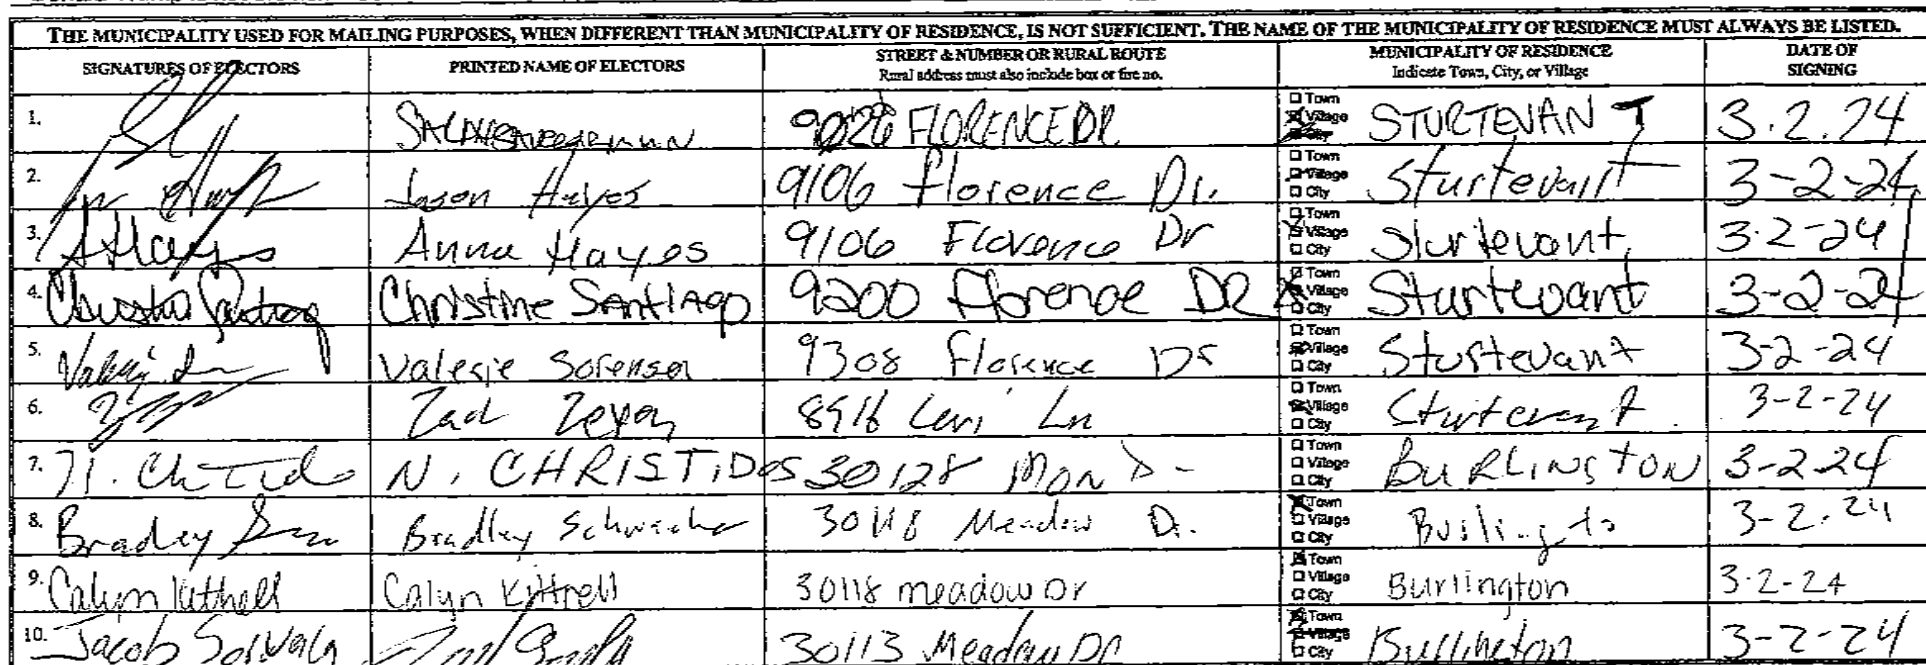 THE MUNICIPALITY USED FOR MAILING PURPOSES, WHEN DIFFERENT THAN MUNICIPALITY OF RESIDENCE, IS NOT SUFFICIENT. THE NAME OF THE MUNICIPALITY OF RESIDENCE MUST ALWAYS BE LISTED.
SIGNATURES OF ELECTORS PRINTED NAME OF ELECTORS STREET & NUMBER OR RURAL ROUTE MUNICIPALITY OF RESIDENCE DATE OF
Rural address must also include box or fire no. Indicate Town, City, or Village SIGNING
1. 9026 FLORENCE DR. Town Village City STURTEVANT 3.2.24
2. Jason Hayes 9106 Florence Dr. Town Village City Sturtevant 3-2-24
3. A Hayes Anna Hayes 9106 Florence Dr Town Village City Sturtevant 3-2-24
4. Christine Santiago 9200 Florence DR Town Village City Sturtevant 3-2-24
5. Valerie Sorensen 9308 Florence Dr Town Village City Sturtevant 3-2-24
6. Zach 8916 Levi Ln Town Village City Sturtevant 3-2-24
7. N. CHRISTIDES 30128 Town Village City BURLINGTON 3-2-24
8. Bradley Bradley 30118 Meadow D. Town Village City Burlingto 3-2.24
9. Calyn Kittrell Calyn Kittrell 30118 meadow Dr Town Village City Burlington 3-2-24
10. Jacob 30113 Meadow Dr Town Village City Burlington 3-2-24